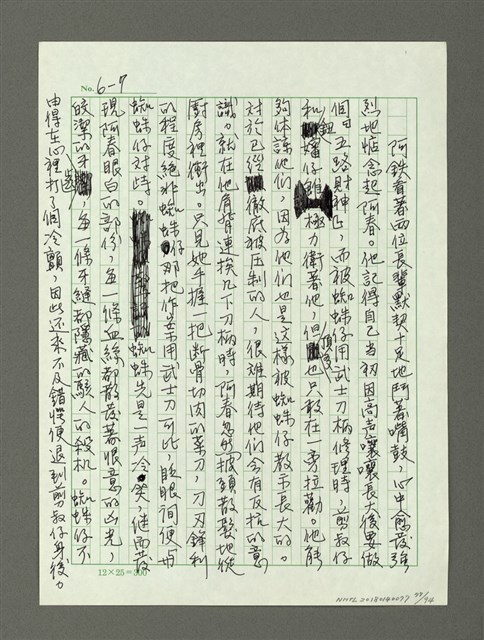 No. 6-7
阿鉄看著两位長輩默契十足地鬥著嘴鼓,心中愈發強
烈地惦念起阿春。他記得自己当初因高声嚷嚷長大後要做
個日五路財神正,而被蜘蛛仔用武士刀柄修理時,剪叔仔
和鈕嬸仔雖極力衛著他,但頂多也只敢在一旁拉勸。他能
夠体諒他們,因為他們也是這樣被蜘蛛仔教示長大的。
对於已經徹底被压制的人,很难期待他們会有反抗的意
識。就在他肩背連挨几下刀柄時,阿春忽然披頭散髮地從
厨房裡衝出。只見她手握一把断骨切肉的菜刀,刀刃鋒利
的程度絕非蜘蛛仔那把作岸用武士刀可比,眨眼间便与
蜘蛛仔对峙。蜘蛛先是一声冷笑,继而發
現阿春眼白的部份,每一條血絲都散發著恨意的凶光,
皎潔的牙齒,每一條牙縫都隱藏的駭人的殺机。蜘蛛仔不
由得在心裡打了個冷顫,因此还來不及錯愕便退到剪叔仔身後。
12×25=300
NMTL20180140077 77/94